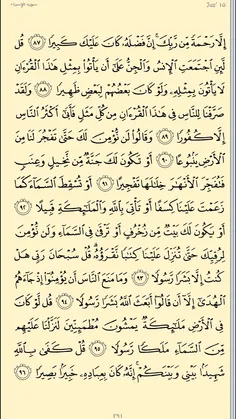 سورة الإسراء Juz' 15
إِلَّا رَحْمَةً مِّن رَّبِّكَ ۚ إِنَّ فَضْلَهُۥ كَانَ عَلَيْكَ كَبِيرًا ٨٧ قُل
لَّئِنِ ٱجْتَمَعَتِ ٱلْإِنسُ وَٱلْجِنُّ عَلَىٰٓ أَن يَأْتُوا۟ بِمِثْلِ هَٰذَا ٱلْقُرْءَانِ
لَا يَأْتُونَ بِمِثْلِهِۦ وَلَوْ كَانَ بَعْضُهُمْ لِبَعْضٍ ظَهِيرًا ٨٨ وَلَقَدْ
صَرَّفْنَا لِلنَّاسِ فِى هَٰذَا ٱلْقُرْءَانِ مِن كُلِّ مَثَلٍ فَأَبَىٰٓ أَكْثَرُ ٱلنَّاسِ
إِلَّا كُفُورًا ٨٩ وَقَالُوا۟ لَن نُّؤْمِنَ لَكَ حَتَّىٰ تَفْجُرَ لَنَا مِنَ
ٱلْأَرْضِ يَنۢبُوعًا ٩٠ أَوْ تَكُونَ لَكَ جَنَّةٌ مِّن نَّخِيلٍ وَعِنَبٍ
فَتُفَجِّرَ ٱلْأَنْهَٰرَ خِلَٰلَهَا تَفْجِيرًا ٩١ أَوْ تُسْقِطَ ٱلسَّمَآءَ كَمَا
زَعَمْتَ عَلَيْنَا كِسَفًا أَوْ تَأْتِىَ بِٱللَّهِ وَٱلْمَلَٰٓئِكَةِ قَبِيلًا ٩٢
أَوْ يَكُونَ لَكَ بَيْتٌ مِّن زُخْرُفٍ أَوْ تَرْقَىٰ فِى ٱلسَّمَآءِ وَلَن نُّؤْمِنَ
لِرُقِيِّكَ حَتَّىٰ تُنَزِّلَ عَلَيْنَا كِتَٰبًا نَّقْرَؤُهُۥ ۗ قُلْ سُبْحَانَ رَبِّى هَلْ
كُنتُ إِلَّا بَشَرًا رَّسُولًا ٩٣ وَمَا مَنَعَ ٱلنَّاسَ أَن يُؤْمِنُوٓا۟ إِذْ جَآءَهُمُ
ٱلْهُدَىٰٓ إِلَّآ أَن قَالُوٓا۟ أَبَعَثَ ٱللَّهُ بَشَرًا رَّسُولًا ٩٤ قُل لَّوْ كَانَ
فِى ٱلْأَرْضِ مَلَٰٓئِكَةٌ يَمْشُونَ مُطْمَئِنِّينَ لَنَزَّلْنَا عَلَيْهِم
مِّنَ ٱلسَّمَآءِ مَلَكًا رَّسُولًا ٩٥ قُلْ كَفَىٰ بِٱللَّهِ
شَهِيدًۢا بَيْنِى وَبَيْنَكُمْ ۚ إِنَّهُۥ كَانَ بِعِبَادِهِۦ خَبِيرًۢا بَصِيرًا ٩٦
٢٩١